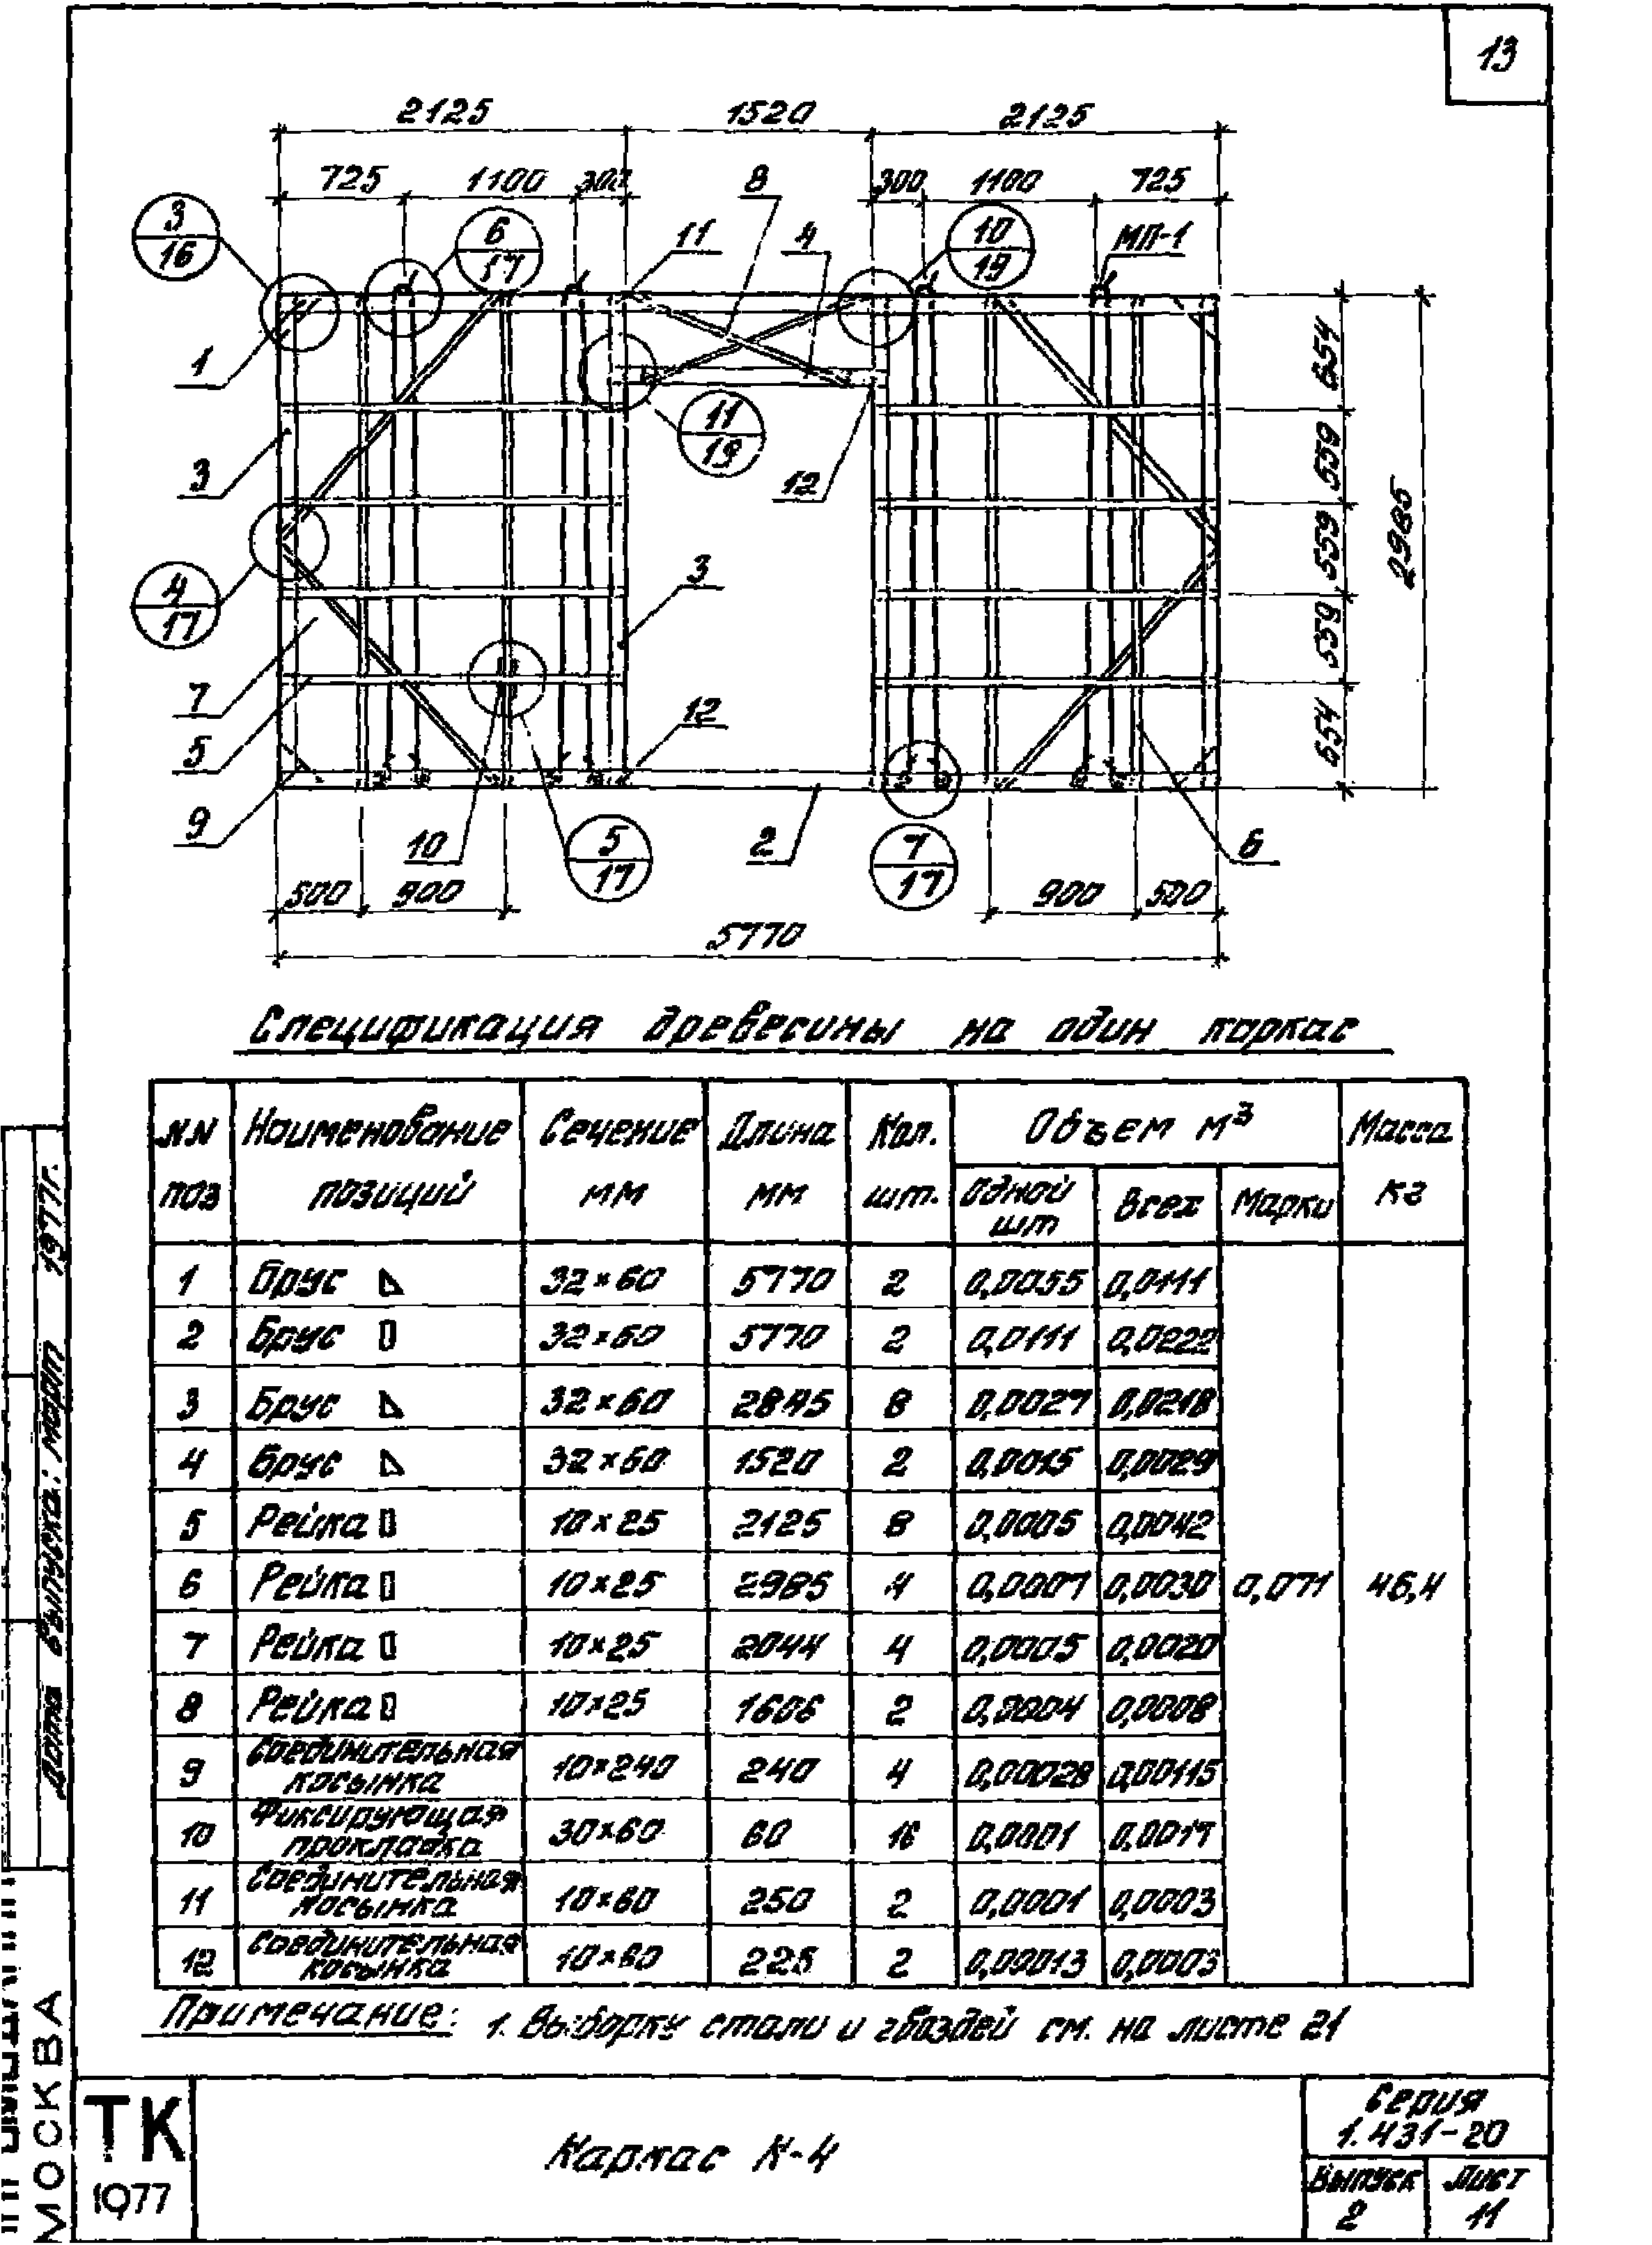 13
2125 1520 2125
725 1100 300 8 300 1100 725
3
16
6
17
11
4
10
19
МП-1
1
3
4
17
7
5
9
11
19
12
3
12
10
5
17
2
7
17
6
654
559
559
559
654
2985
500 900 900 500
5770
Спецификация древесины на один каркас
NN поз Наименование позиций Сечение мм Длина мм Кол. шт. Объем м³ Масса кг
Одной шт Всех Марки
1 Брус 32×60 5770 2 0,0055 0,0111
2 Брус 32×60 5770 2 0,0111 0,0222
3 Брус 32×60 2845 8 0,0027 0,0218
4 Брус 32×60 1520 2 0,0015 0,0029
5 Рейка 10×25 2125 8 0,0005 0,0042
6 Рейка 10×25 2985 4 0,0007 0,0030 0,071 46,4
7 Рейка 10×25 2044 4 0,0005 0,0020
8 Рейка 10×25 1606 2 0,0004 0,0008
9 Соединительная косынка 10×240 240 4 0,00028 0,00115
10 Фиксирующая прокладка 30×60 60 16 0,0001 0,0017
11 Соединительная косынка 10×60 250 2 0,0001 0,0003
12 Соединительная косынка 10×60 225 2 0,00013 0,0003
Примечание: 1. Выборку стали и гвоздей см. на листе 21
Дата выпуска: март 1977г.
МОСКВА
ТК
1977
Каркас К-4
Серия
1.431-20
Выпуск
2
Лист
11